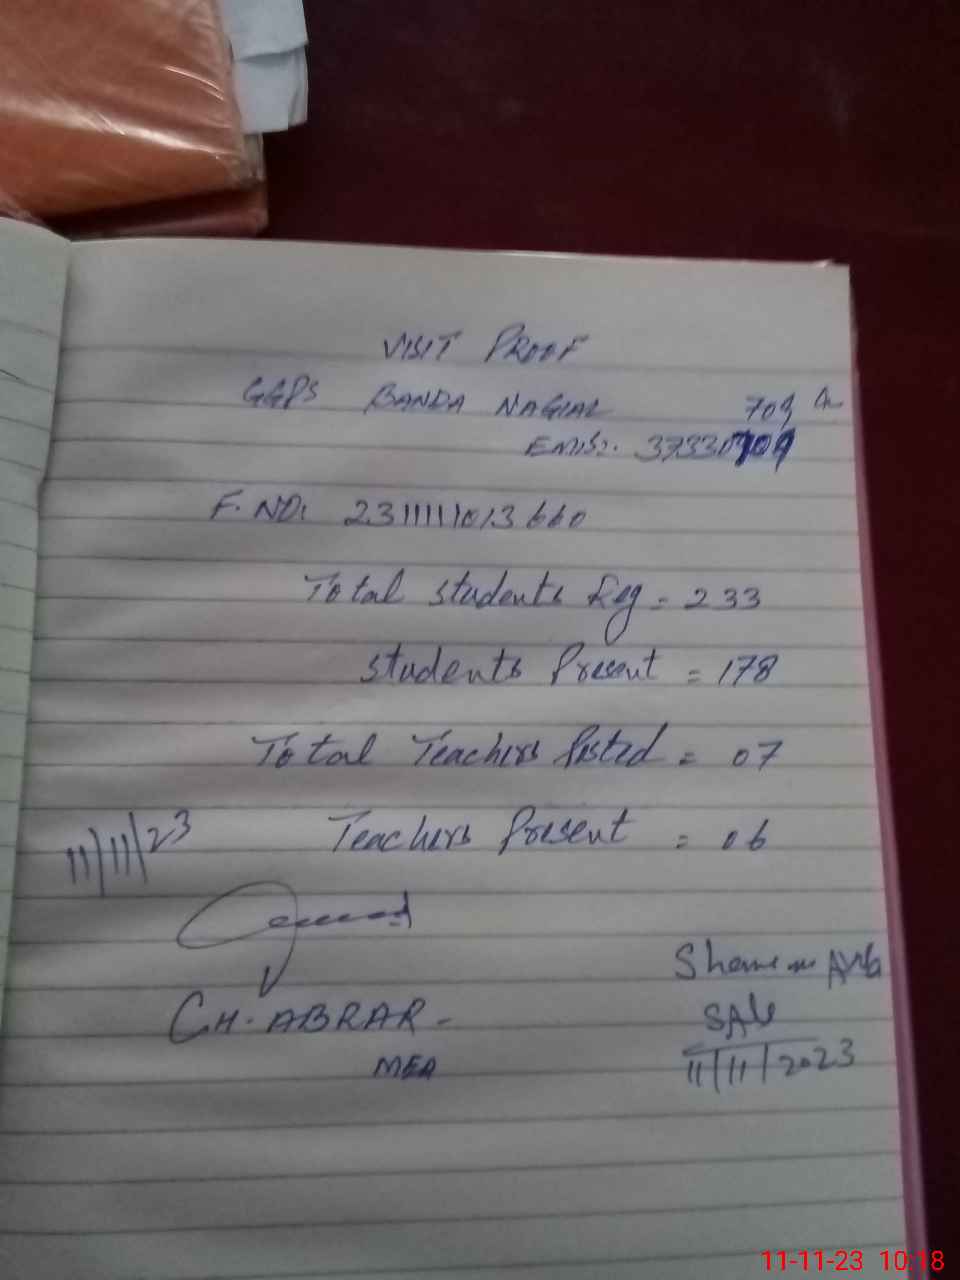 VISIT PROOF
GGPS BANDA NAGIAL
709
EMIS:. 37330709
F. NO: 2311111013660
Total students Reg = 233
students Present = 178
Total Teachers Posted = 07
Teachers Present = 06
11/11/23
CH. ABRAR -
MEA
11/11/2023
11-11-23 10:18